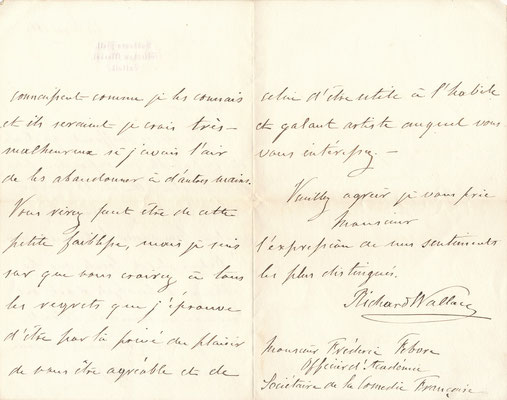 connaissent comme je les connais
et ils seraient je crois très-
malheureux si j'avais l'air
de les abandonner à d'autres mains.
Vous rirez peut être de cette
petite faiblesse, mais je suis
sur que vous croirez à tous
les regrets que j'éprouve
d'être par là privé du plaisir
de vous être agréable et de
celui d'être utile à l'habile
et galant artiste auquel vous
vous intéressez. —
Veuillez agréer je vous prie
Monsieur
l'expression de mes sentiments
les plus distingués.
Richard Wallace
Monsieur Fréderic Febvre
Officier d'Académie
Sociétaire de la Comedie Française